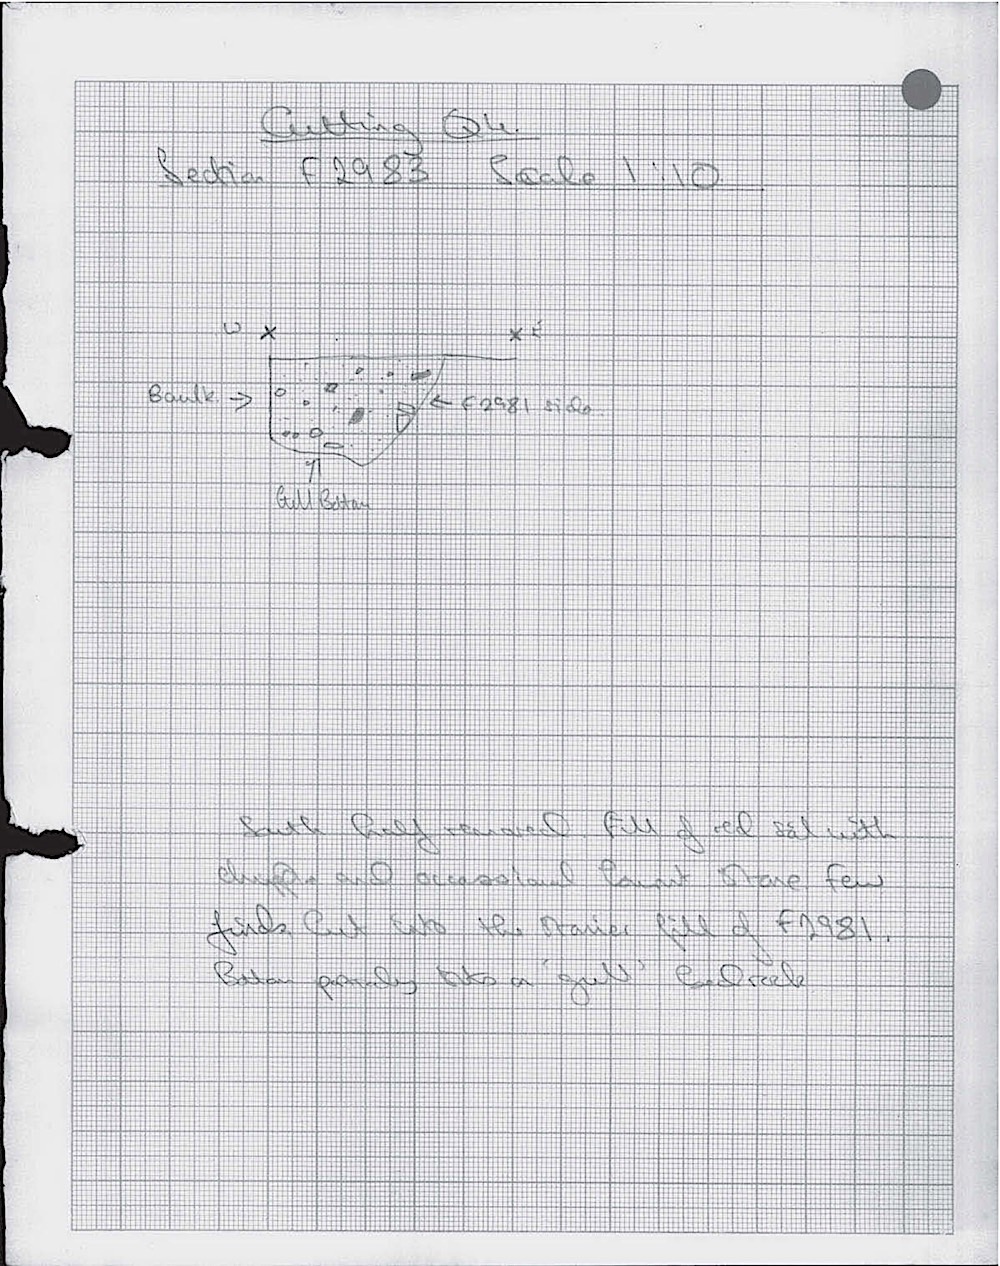 Cutting Q4.
Section F2983 Scale 1:10
W X X E
Baulk → ← F2981 side
Gull Bottom
South half removed. Fill of red soil with
and occassional burnt stone few
finds. Cut into the stonier fill of F2981.
Bottom into a 'gull' bedrock